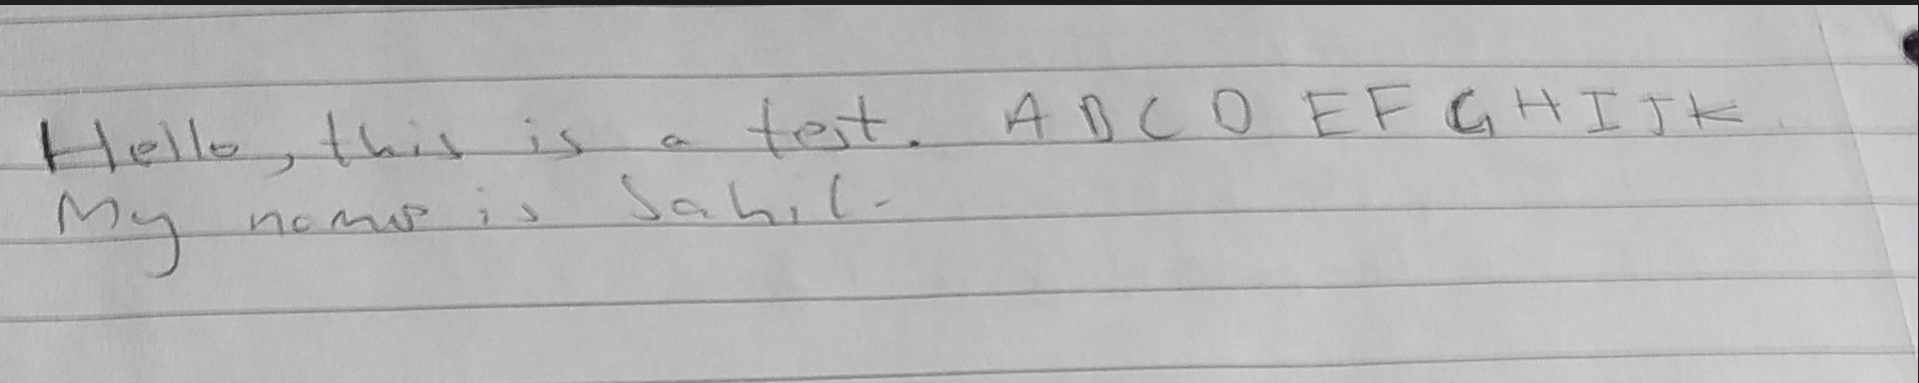 Hello, this is a test. A B C D E F G H I J K
My name is Sahil.